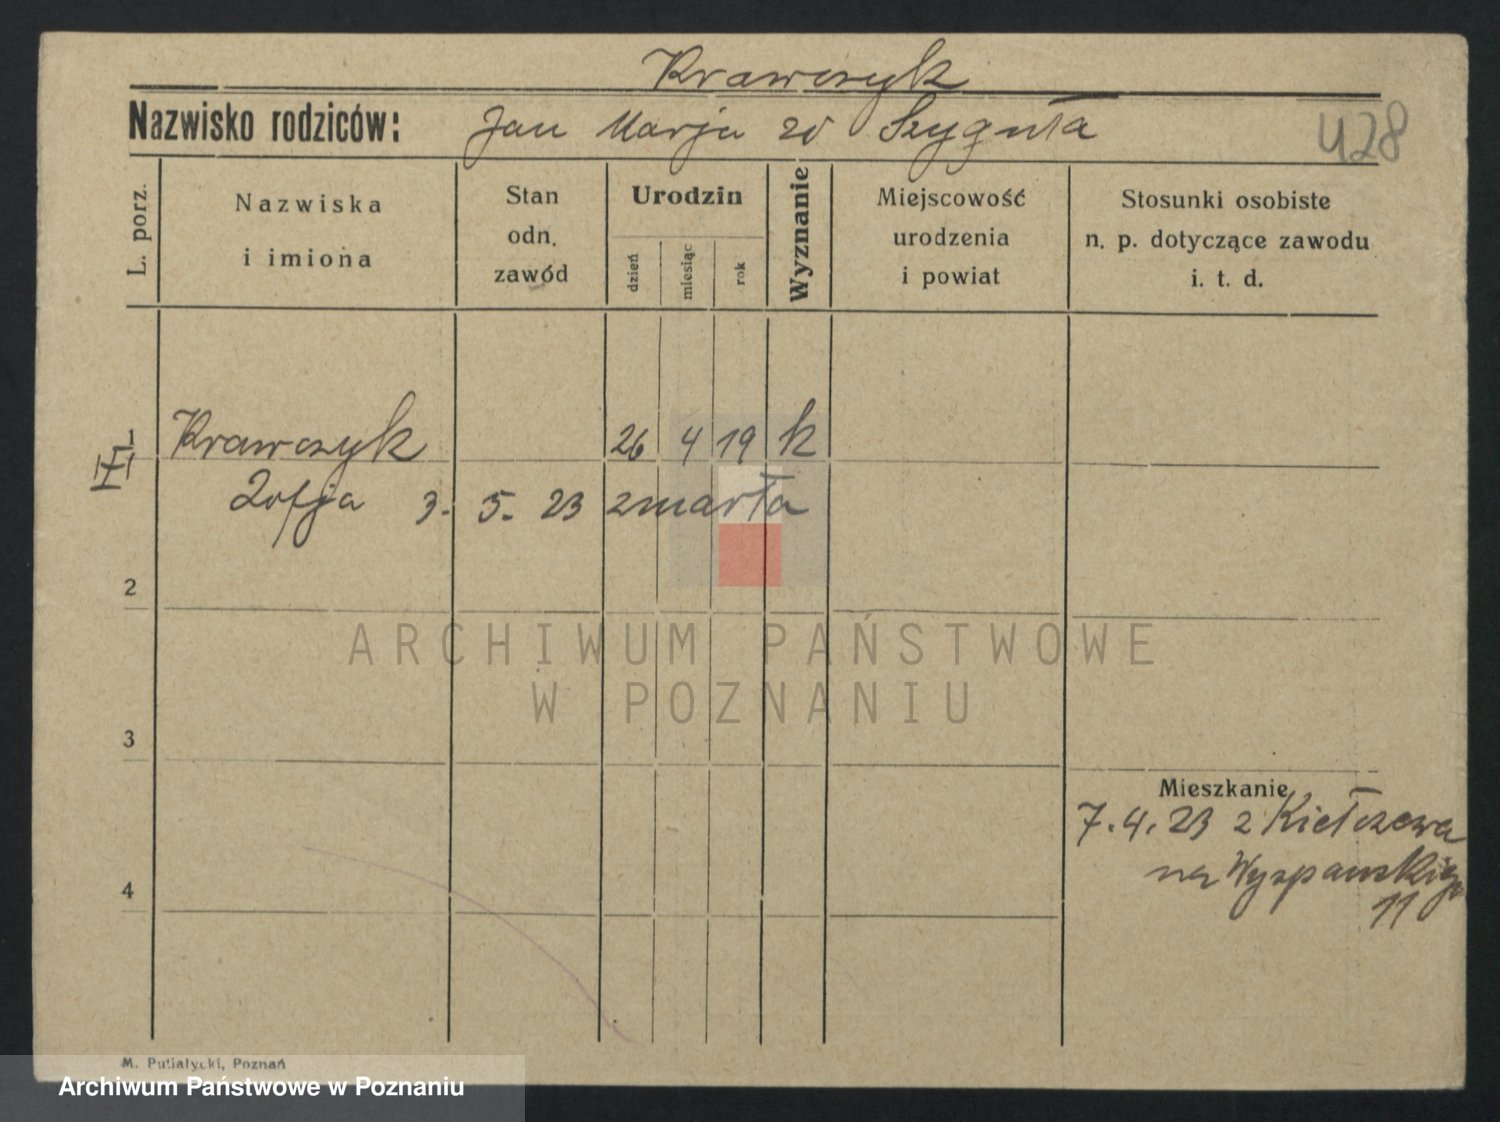 Krawczyk
Nazwisko rodziców: Jan Marja zd Szyguła
428
L. porz.
Nazwiska
i imiona
Stan
odn.
zawód
Urodzin
dzień
miesiąc
rok
Wyznanie
Miejscowość
urodzenia
i powiat
Stosunki osobiste
n. p. dotyczące zawodu
i. t. d.
1 Krawczyk 26 4 19 k
Zofja 3. 5. 23 zmarła
2
ARCHIWUM PAŃSTWOWE
W POZNANIU
3
Mieszkanie
7.4.23 z Kiełczewa
na Wyspańskiego
11
4
M. Putiatycki, Poznań
Archiwum Państwowe w Poznaniu